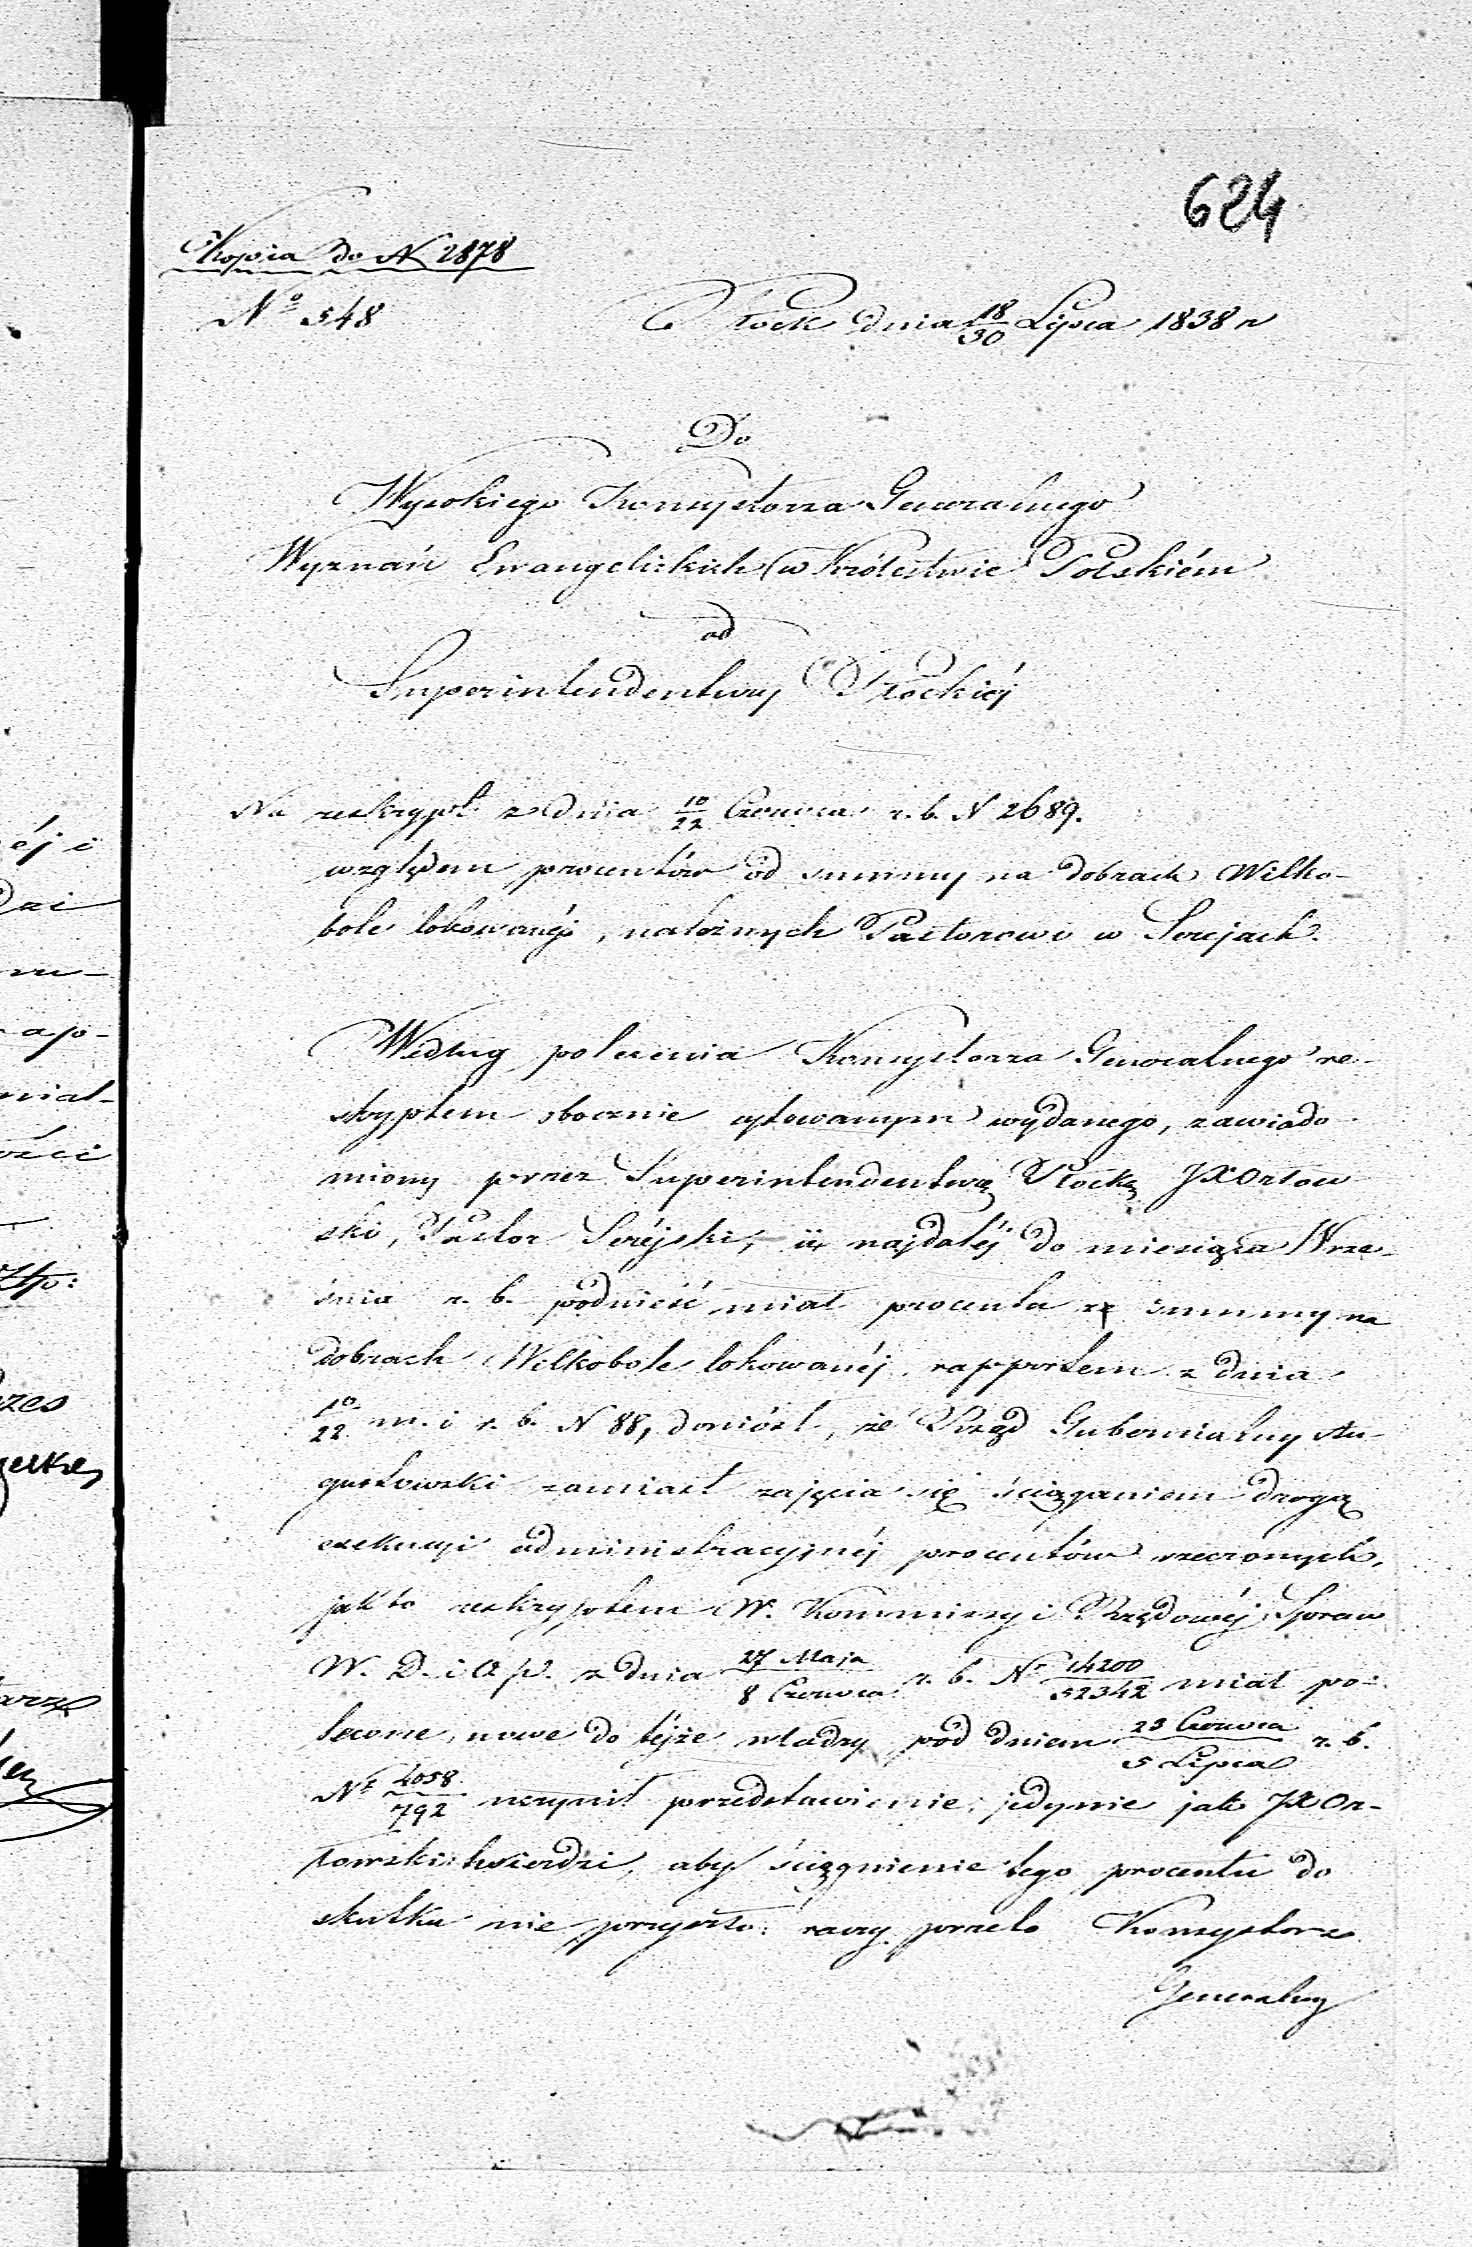 624
Kopia do N 2878
No 548
Płock dnia 18/30 Lipca 1838 r
Do
Wysokiego Konsystorza Generalnego
Wyznań Ewangelickich w Królestwie Polskiém
od
Superintendentury Płockiéj
Na reskrypt z dnia 10/22 Czerwca r. b. N 2689.
względem procentów od summy na dobrach Wilko-
bole lokowanéj, należnych Pastorowi w Serejach.
Według polecenia Konsystorza Generalnego re-
skryptem obocznie cytowanym wydanego, zawiado-
miony przez Superintendenturę Płocką JX Orłow
ski, Pastor Seréjski, iż najdaléj do miesiąca Wrze-
śnia r. b. podnieść miał procenta z summy na
dobrach Wilkobole lokowanéj, rapportem z dnia
10/22 m. i r. b. N 88, doniósł, że Rząd Gubernialny Au-
gustowski zamiast zajęcia się ściąganiem drogą
exekucyi administracyjnéj procentów rzeczonych,
jak to reskryptem W. Kommissyi Rządowéj Spraw
W. D. i O. P. z dnia 27 Maja/8 Czerwca r. b. Nr 14200/52342 miał po-
lecone, nowe do téjże władzy pod dniem 23 Czerwca/5 Lipca r. b.
Nr 4058/792 uczynił przedstawienie, jedynie jak JX Or-
łowski twierdzi, aby ściągnienie tego procentu do
skutku nie przyszło: raczy przeto Konsystorz
Generalny
éj i
ru-
apo-
mial-
ości
Złp: